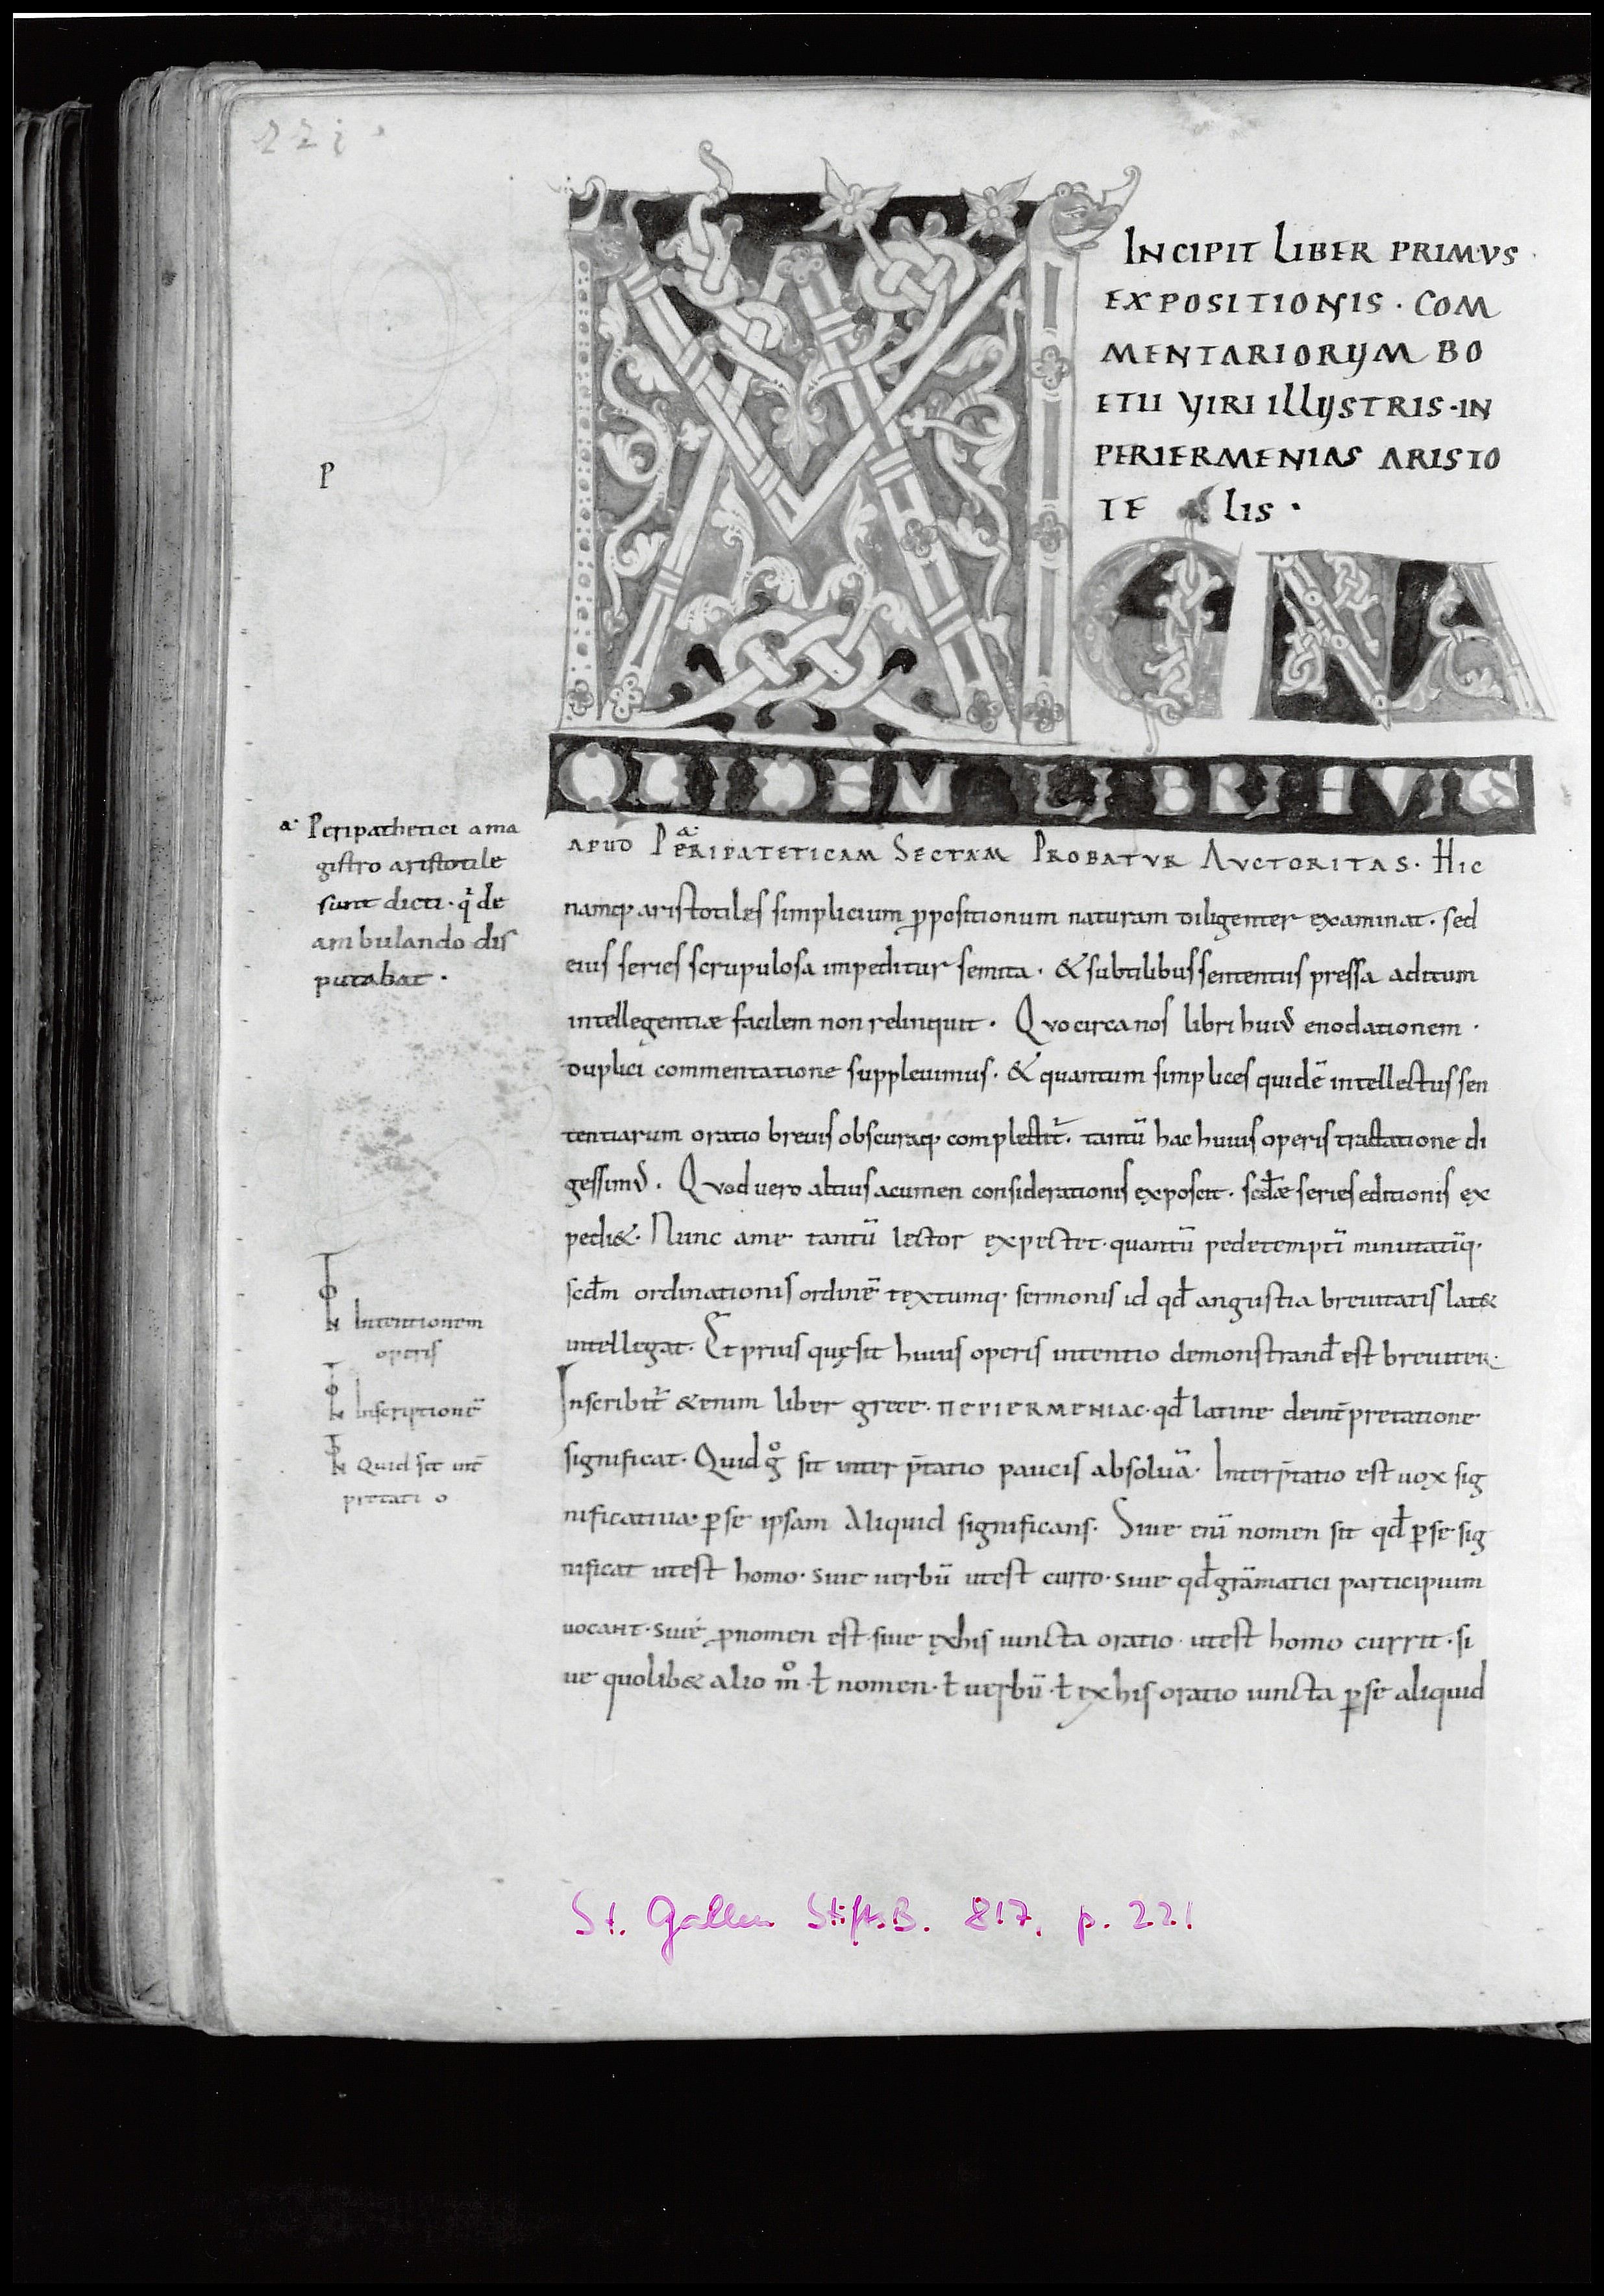 221
INCIPIT LIBER PRIMVS
EXPOSITIONIS · COM
MENTARIORVM BO
ETII VIRI ILLVSTRIS · IN
PERIERMENIAS ARISTO
TE LIS ·
P
MAGNA
QVIDEM LIBRI HVIVS
APUD PERIPATETICAM SECTAM PROBATVR AVCTORITAS · HIC
namq; aristotiles simplicium ꝓpositionum naturam diligenter examinat · sed
eius series scrupulosa impeditur semita · & subtilibus sententiis pressa aditum
intellegentiæ facilem non relinquit · Quo circa nos libri huiꝰ enodationem ·
duplici commentatione suppleuimus · & quantum simplices quidē intellectus sen
tentiarum oratio breuis obscuraq; complectit̄ · tantū hac huius operis tractatione di
gessimꝰ · Quod uero altius acumen considerationis exposcit · scd̄æ series editionis ex
pedi& · Nunc ame tantū lector expectet · quantū pedetemptī minutatīq ·
scd̄m ordinationis ordinē textumq · sermonis id qd̄ angustia breuitatis lat&
intellegat · Et prius quę sit huius operis intentio demonstrand̄ est breuiter ·
Inscribit̄ &enim liber grece · ΠΕΡΙΕRΜΕΝΙΑC · qd̄ latine deint̄pretatione
significat · Quid gͦ sit inter p̄tatio paucis absoluā · Interp̄tatio est uox sig
nificatiua · ꝑse ipsam Aliquid significans · Siue enī nomen sit qd̄ ꝑse sig
nificat utest homo · siue uerbū utest curro · siue qd̄ grāmatici participium
uocant · siue ꝓnomen est · siue exhis iuncta oratio · utest homo currit · si
ue quolib& alio mͦ · ł nomen · ł uerbū · ł exhis oratio iuncta ꝑse aliquid
a· Peripathetici ama
gistro aristotile
sunt dicti · q de
ambulando dis
putabat ·
Intentionem
operis
Inscriptionē
Quid sit int̄
pretati o
St. Gallen Stift.B. 817, p. 221